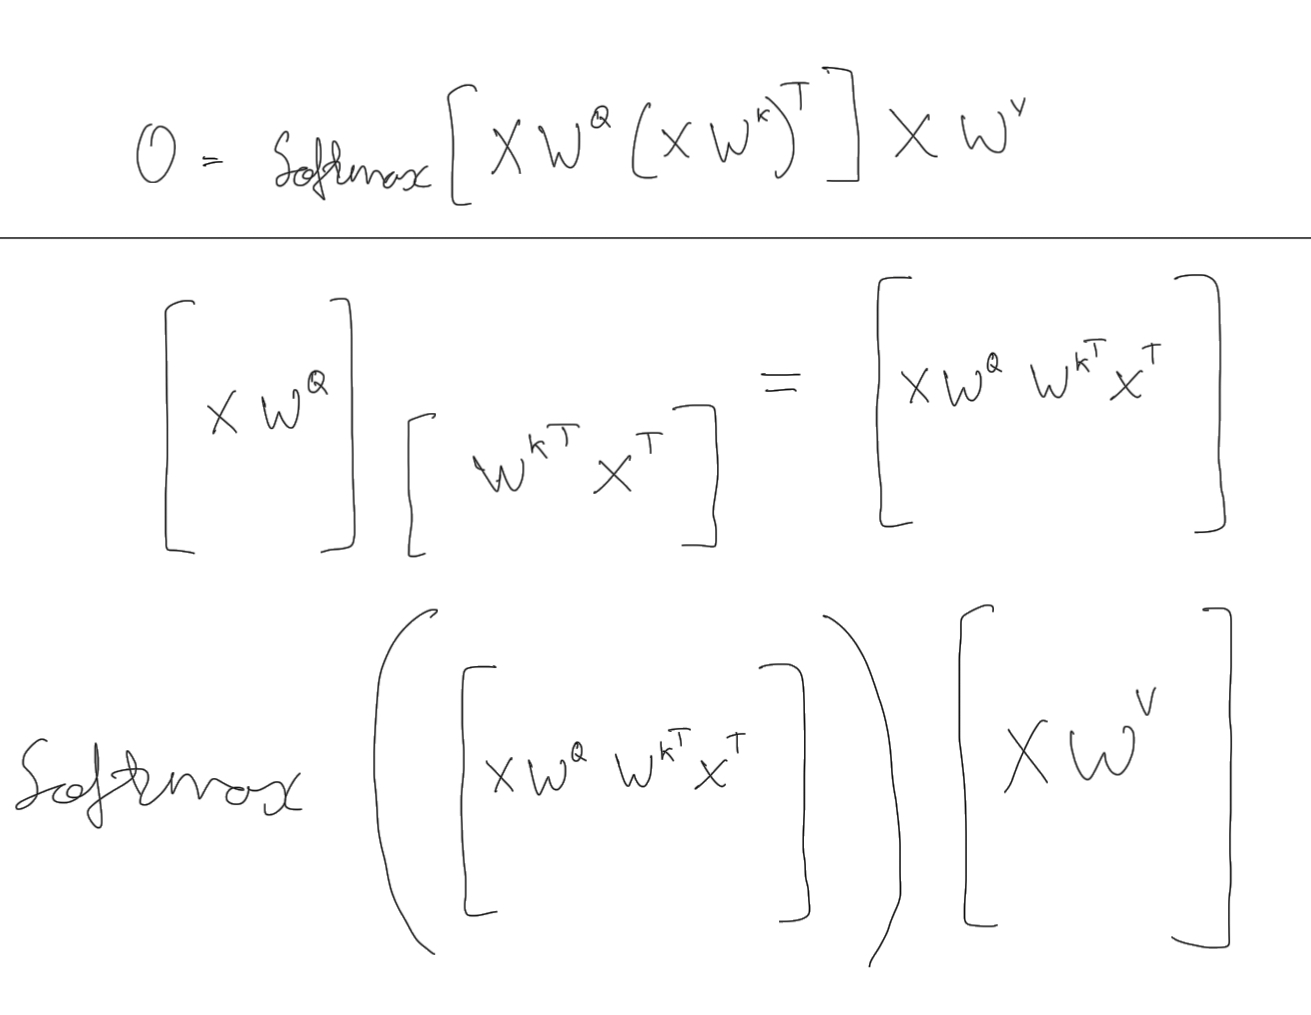 O = Softmax [ X W^Q (X W^K)^T ] X W^V
[ X W^Q ] [ W^K^T X^T ] = [ X W^Q W^K^T X^T ]
Softmax ( [ X W^Q W^K^T X^T ] ) [ X W^V ]